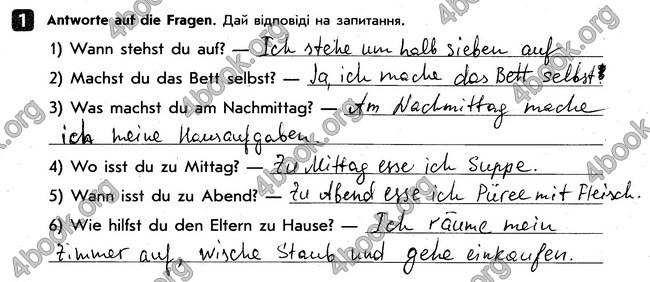 1 Antworte auf die Fragen. Дай відповіді на запитання.
1) Wann stehst du auf? — Ich stehe um halb sieben auf.
2) Machst du das Bett selbst? — Ja, ich mache das Bett selbst.
3) Was machst du am Nachmittag? — Am Nachmittag mache
ich meine Hausaufgaben.
4) Wo isst du zu Mittag? — Zu Mittag esse ich Suppe.
5) Wann isst du zu Abend? — Zu Abend esse ich Püree mit Fleisch.
6) Wie hilfst du den Eltern zu Hause? — Ich räume mein
Zimmer auf, wische Staub und gehe einkaufen.
4book.org
4book.org
4book.org
4book.org
4book.org
4book.org